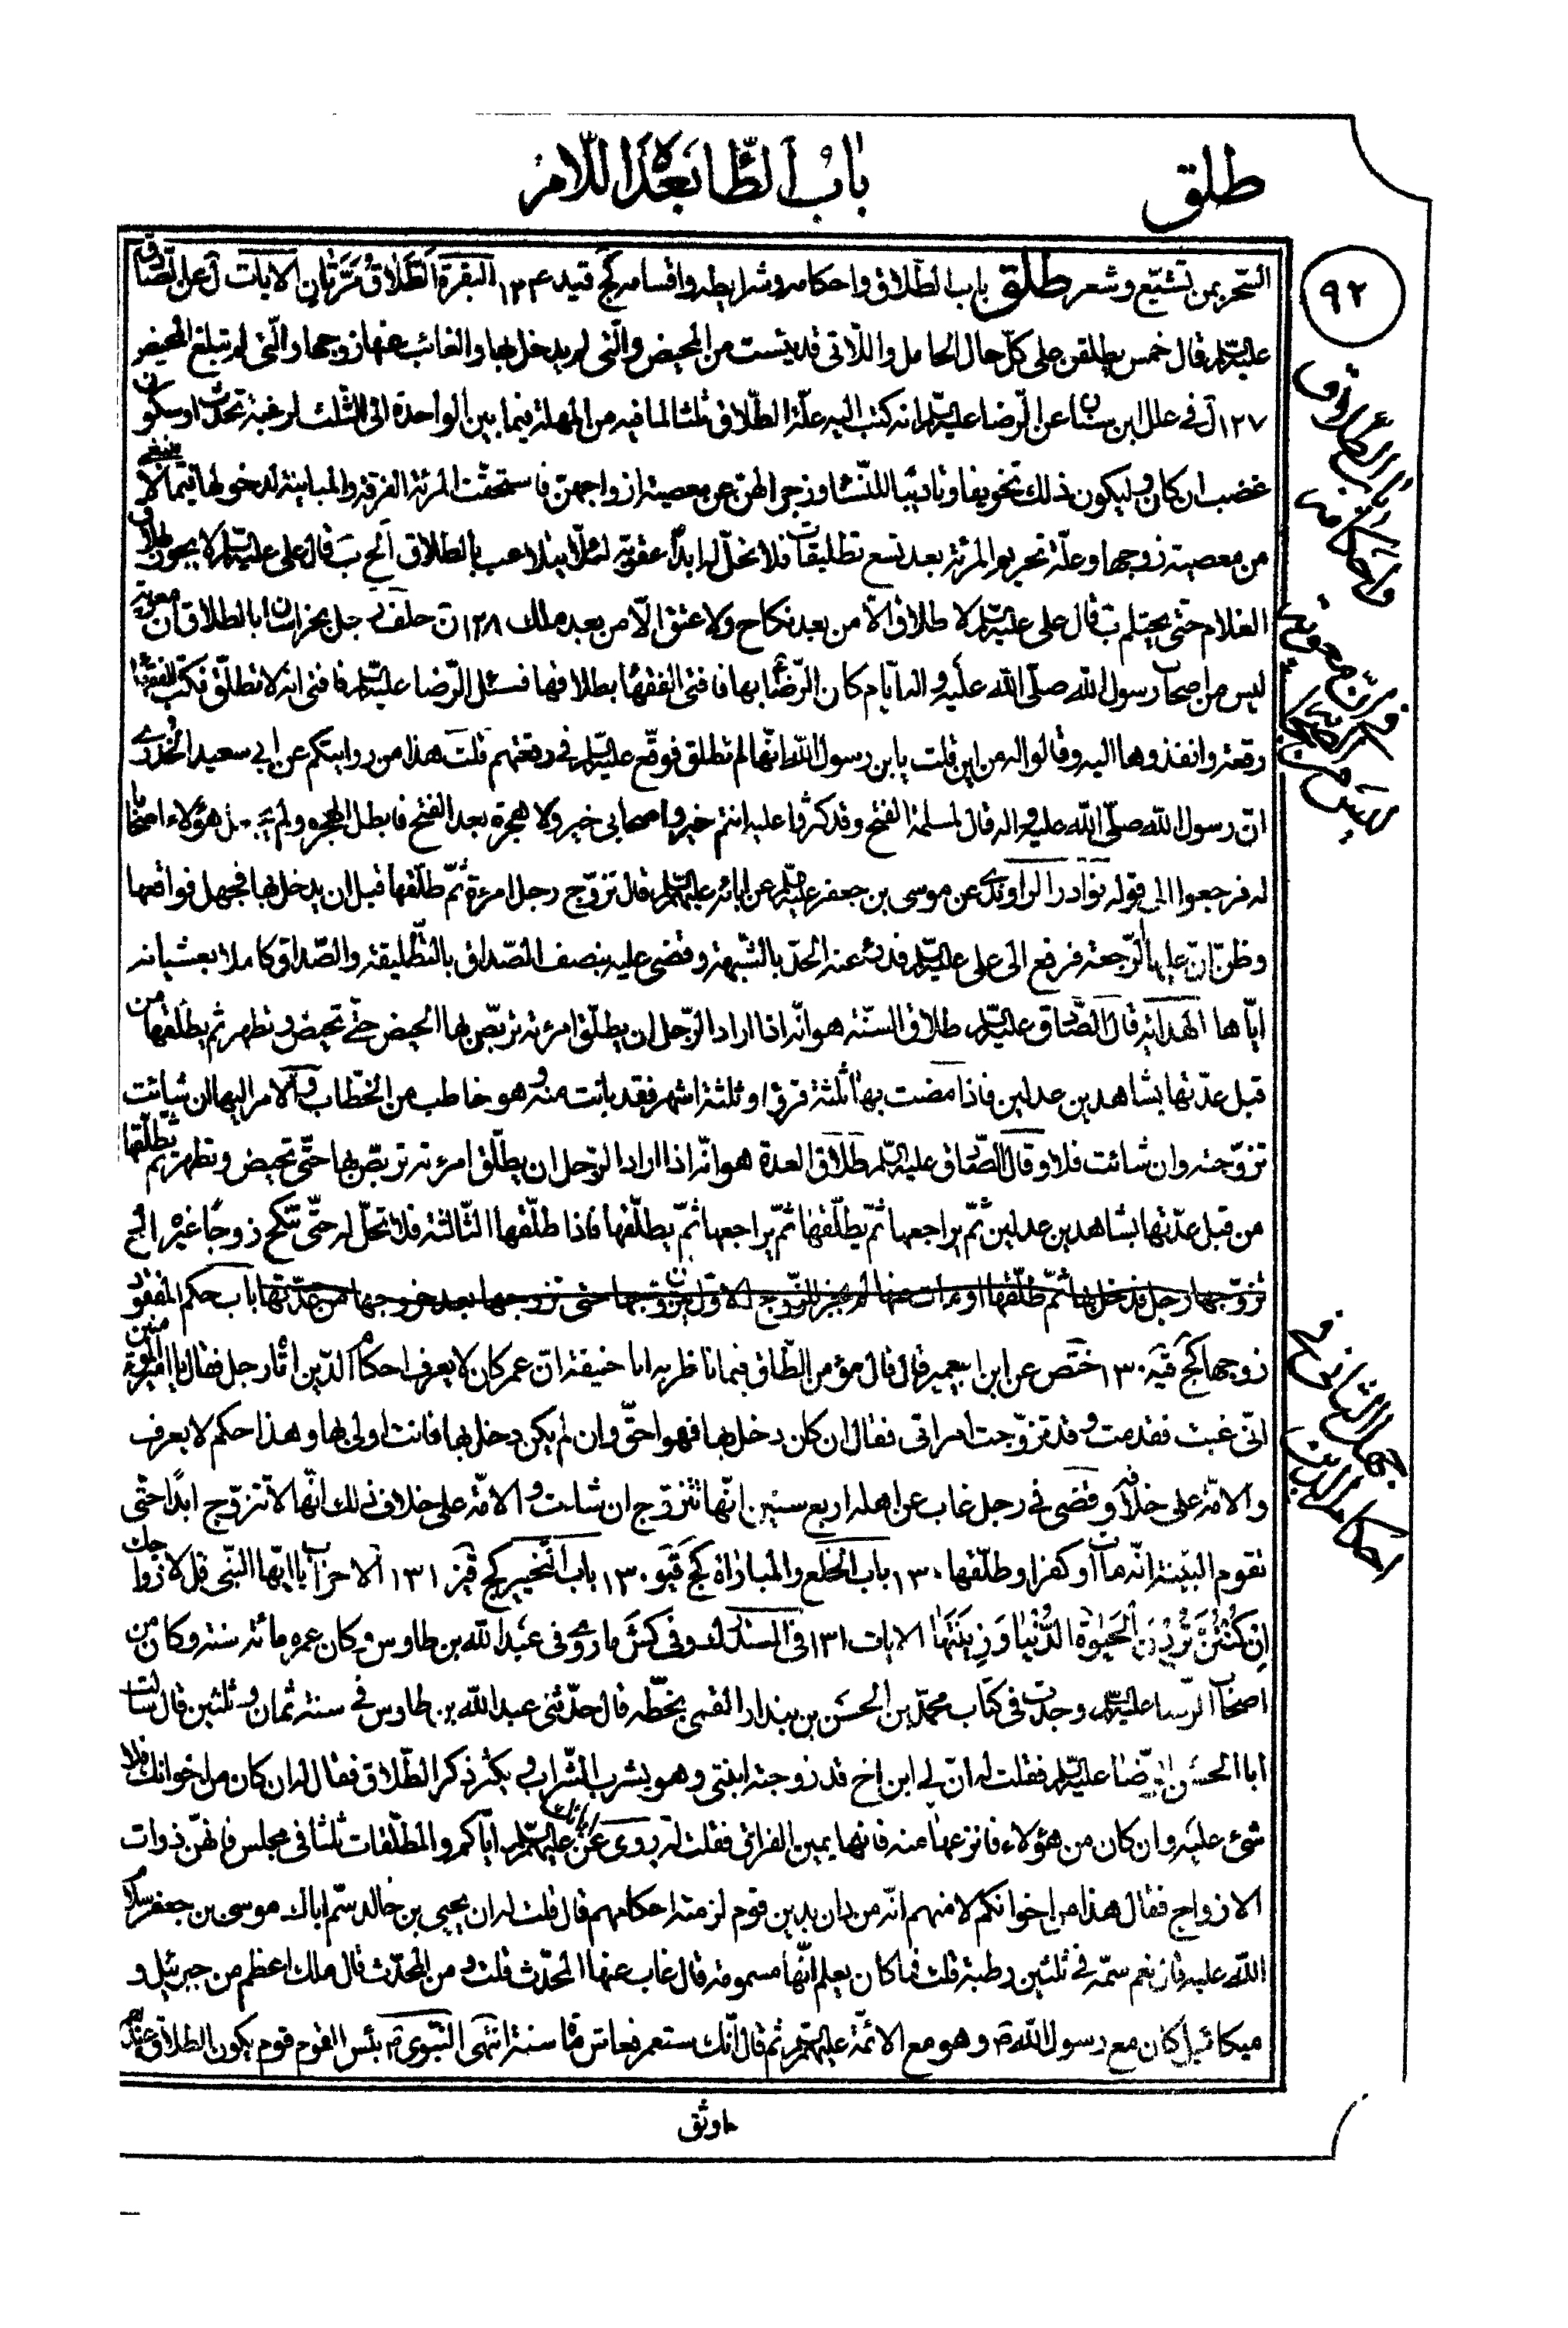 طلق
باب الطّاء بعده اللام
٩٢
التحريم من تشيّع وشعر طلق باب الطّلاق واحكامه وشرايطه واقسامه كج قيد ع ١٣ البقرة الطّلاق مرّتان الآيات ل عن الصّادق
عليه السّلام قال خمس يطلقن على كلّ حال الحامل واللّاتى قد يئست من المحيض والّتى لم يدخل بها والغائب عنها زوجها والّتى لم تبلغ المحيض
١٢٧ ل فى علل ابن سنان عن الرّضا عليه السّلام انه كتب اليه علّة الطّلاق ثلثا لما فيه من المهلة فيما بين الواحدة الى الثلث لرغبة تحدث او سكون
غضب ان كان وليكون ذلك تخويفا وتاديبا للنّساء وزجرا لهنّ عن معصية ازواجهنّ فاستحقّت المرئة الفرقة والمباينة لدخولها فيما لا ينبغى
من معصية زوجها وعلّة تحريم المرئة بعد تسع تطليقات فلا تحلّ له ابدًا عقوبة لئلّا يتلاعب بالطلاق الخ ب قال على عليه السّلام لا يجوز طلاق
الغلام حتّى يحتلم ب قال على عليه السّلام لا طلاق الّا من بعد نكاح ولا عتق الّا من بعد ملك ١٢٨ ن حلف رجل بخراسان بالطلاق ان معوية
ليس من اصحاب رسول الله صلّى الله عليه واله ايّام كان الرّضا بها فافتى الفقهاء بطلاقها فسئل الرّضا عليه السّلام فافتى انه لا تطلّق فكتب الفقهاء
رقعة وانفذوها اليه وقالوا له من اين قلت يا بن رسول الله انّها لم تطلق فوقّع عليه السّلام فى رقعتهم قلت هذا من روايتكم عن ابى سعيد الخدرى
انّ رسول الله صلّى الله عليه واله قال لمسلمة الفتح وقد كثروا عليه انتم خير واصحابى خير ولا هجرة بعد الفتح فابطل الهجره ولم يجعل هؤلاء اصحابا
له فرجعوا الى قوله نوادر الراوندى عن موسى بن جعفر عن ابائه عليهم السّلام قال تزوّج رجل امرءة ثمّ طلّقها قبل ان يدخل بها فجهل فواقعها
وظنّ انّ عليها الرّجعة فرفع الى على عليه السّلام فدرئ عنه الحدّ بالشّبهة وقضى عليه بنصف الصّداق بالتّطليقة والصّداق كاملا بغشيانه
ايّاها الهداية قال الصّادق عليه السّلام طلاق السنّة هو انّه اذا اراد الرّجل ان يطلّق امرئته تربّص بها الحيض حتّى تحيض وتطهر ثم يطلّقها من
قبل عدّتها بشاهدين عدلين فاذا مضت بها ثلثة قروء او ثلثة اشهر فقد بانت منه وهو خاطب من الخطّاب والامر اليها ان شائت
تزوّجته وان شائت فلا وقال الصّادق عليه السّلام طلاق العدة هو انّه اذا اراد الرّجل ان يطلّق امرءته تربّص بها حتّى تحيض وتطهر ثم يطلّقها
من قبل عدّتها بشاهدين عدلين ثمّ يراجعها ثمّ يطلّقها ثمّ يراجعها ثمّ يطلّقها فاذا طلّقها الثّالثة فلا تحلّ له حتّى تنكح زوجًا غيره الخ
تزوّجها رجل فدخل بها ثمّ طلّقها او مات عنها لم يجز للزّوج الاوّل ان يتزوّجها حتى تزوجها بعد خروجها من عدّتها باب حكم المفقود
زوجها كج قيه ١٣٠ ختص عن ابن ابى عمير قال قال مؤمن الطّاق فيما ناظر به ابا حنيفة انّ عمر كان لا يعرف احكام الدّين اتاه رجل فقال يا امير المؤمنين
انّى غبت فقدمت وقد تزوّجت امراتى فقال ان كان دخل بها فهو احقّ وان لم يكن دخل بها فانت اولى بها وهذا حكم لا يعرف
والامّة على خلافه وقضى فى رجل غاب عن اهله اربع سنين انّها تتزوّج ان شاءت والامّة على خلاف ذلك انّها لا تتزوّج ابدًا حتّى
تقوم البيّنة انّه مات او كفر او طلّقها ١٣٠ باب الخلع والمباراة كج قيو ١٣٠ باب التّخيير كج قيز ١٣١ الاحزاب يا ايّها النّبى قل لازواجك
ان كنتنّ تردن الحيوة الدّنيا وزينتها الايات ١٣١ فى المستدرك وفى كش ما روى فى عبد الله بن طاوس وكان عمره مائة سنة وكان من
اصحاب الرّضا عليه السّلام وجدت فى كتاب محمّد بن الحسن بن بندار القمى بخطّه قال حدّثنى عبد الله بن طاوس فى سنة ثمان وثلثين قال سالت
ابا الحسن الرّضا عليه السّلام فقلت له انّ لى ابن اخ قد زوجته ابنتى وهو يشرب الشّراب ويكثر ذكر الطّلاق فقال له ان كان من اخوانك فلا
شىء عليه وان كان من هؤلاء فانزعها منه فانها يمين الفراق فقلت له روى عن ابائك عليهم السّلام ايّاكم والمطلّقات ثلثا فى مجلس فانهنّ ذوات
الازواج فقال هذا من اخوانكم لا منهم انّه من دان بدين قوم لزمته احكامهم قال قلت له ان يحيى بن خالد سمّ اباك موسى بن جعفر سلام
الله عليه قال نعم سمّه فى ثلثين رطبة قلت فما كان يعلم انّها مسمومة قال غاب عنها المحدّث قلت ومن المحدّث قال ملك اعظم من جبرئيل و
ميكائيل كان مع رسول الله ص وهو مع الائمّة عليهم السّلام ثم قال انّك ستعمر فعاش مائة سنة انتهى النّبوى ص بئس القوم قوم يكون الطلاق عندهم
اوثق
باب الطلاق
واحكامه
فى انّ معوية
ليس من الصحابة
جهل الثانى فى
احكام الدين